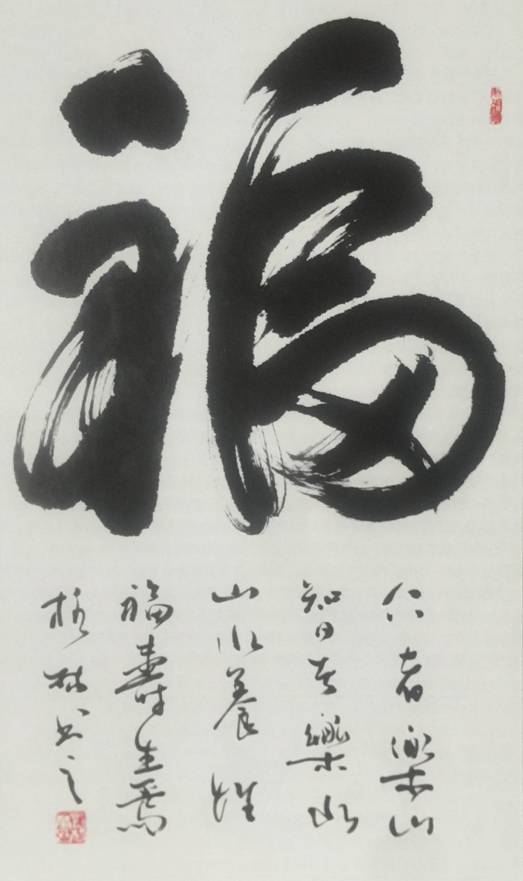 福
仁者樂山
智者樂水
山水養性
福壽生焉
林書之